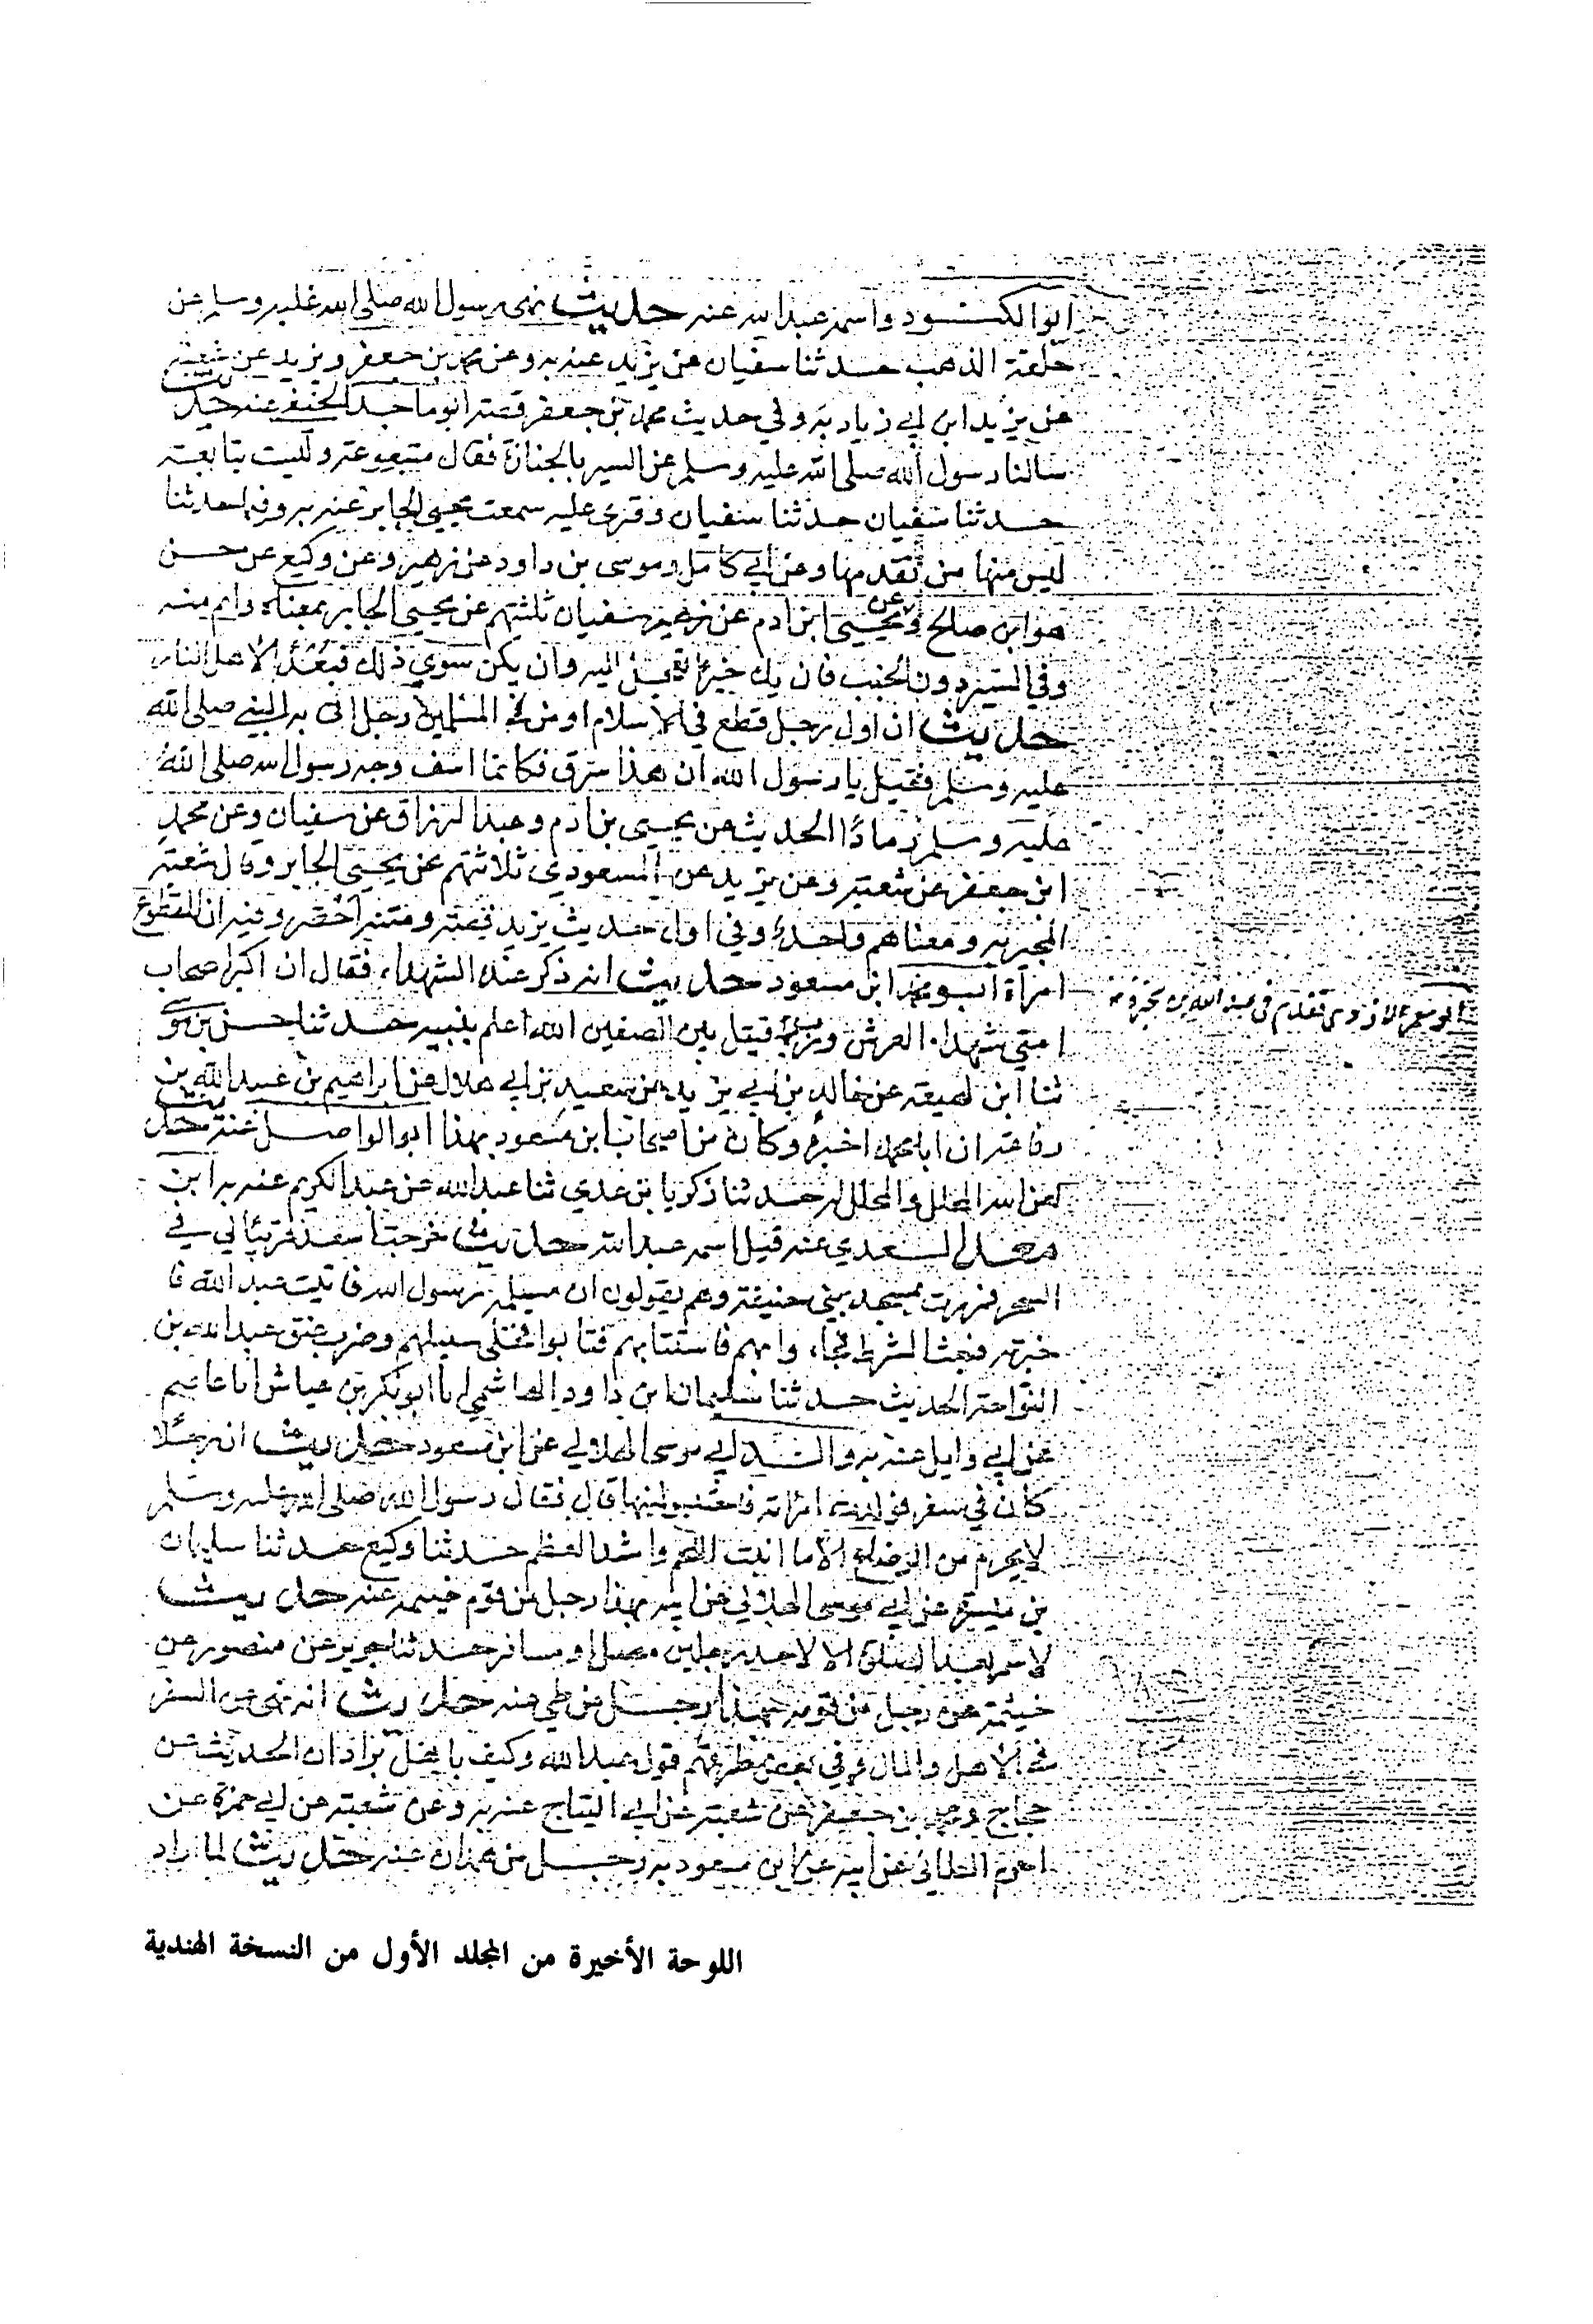 ابو الكنود واسمه عبد الله عنه حديث نهى رسول الله صلى الله عليه وسلم عن
حلقة الذهب حدثنا سفيان عن يزيد عنه به وعن محمد بن جعفر ويزيد عن شعبة
عن يزيد ابن ابي زياد به وفي حديث محمد بن جعفر قصته ابو ماجد الحنفي عنه حديث
سالنا رسول الله صلى الله عليه وسلم عن السير بالجنازة فقال متبوعة وليست بتابعة
حدثنا سفيان حدثنا سفيان وقرئ عليه سمعت يحيى الجابر عنه به وفيه حدثنا
ليس منها من تقدمها وعن ابي كامل وموسى بن داود عن زهير وعن وكيع عن حسن
هو ابن صالح وعن يحيى ابن ادم عن زهير سفيان ثلثتهم عن يحيى الجابر بمعناه واتم منه
وفي السير دون الخبب فان يك خيرا تعجل اليه وان يكن سوى ذلك فبعدا لاهل النار
حديث ان اول رجل قطع في الاسلام او من المسلمين رجل اتى به النبي صلى الله
عليه وسلم فقيل يا رسول الله ان هذا سرق فكانما اسف وجه رسول الله صلى الله
عليه وسلم رمادا الحديث عن يحيى بن ادم وعبد الرزاق عن سفيان وعن محمد
ابن جعفر عن شعبة وعن يزيد عن المسعودي ثلاثتهم عن يحيى الجابر وقال شعبة
المجبر به ومعناهم واحد وفي اول حديث يزيد قصة ومتنه اخصر وفيه ان المقطوع
امراة ابو محمد ابن مسعود حديث انه ذكر عنده الشهداء فقال ان اكثر اصحاب
ابو معمر الازدي تقدم في عبد الله بن سخبرة
امتي شهداء الفرش ورب قتيل بين الصفين الله اعلم بنيته حدثنا حسن بن موسى
ثنا ابن لهيعة عن خالد بن ابي يزيد عن سعيد بن ابي هلال عن ابراهيم بن عبيد الله بن
رفاعة ان ابا محمد اخبره وكان من اصحاب ابن مسعود بهذا ابو الواصل عنه حديث
لعن الله المحلل والمحلل له حدثنا زكريا بن عدي ثنا عبد الله عن عبد الكريم عنه به ابن
معيز السعدي عنه قيل اسمه عبد الله حديث خرجت اسقد فرسا لي في
السحر فمررت بمسجد بني حنيفة وهم يقولون ان مسيلمة رسول الله فاتيت عبد الله فا
خبرته فبعث الشرط فجاءوا بهم فاستتابهم فتابوا فخلى سبيلهم وضرب عنق عبد الله بن
النواحة الحديث حدثنا سليمان ابن داود الهاشمي انا ابو بكر بن عياش انا عاصم
عن ابي وايل عنه به والد ابي موسى الهلالي عن ابن مسعود حديث ان رجلا
كان في سفر فولدت امراته فاحتبس لبنها قال فقال رسول الله صلى الله عليه وسلم
لا يحرم من الرضاع الا ما انبت اللحم وانشد العظم حدثنا وكيع حدثنا سليمان
بن المغيرة عن ابي موسى الهلالي عن ابيه بهذا رجل من قوم خيثمة عنه حديث
لا سمر بعد الصلاة الا لاحد رجلين مصل او مسافر حدثنا جرير عن منصور عن
خيثمة عن رجل من قومه بهذا رجل من طي عنه حديث انه نهى عن التبقر
في الاهل والمال وفي بعض طرقهم قول عبد الله وكيف باهل براذان الحديث عن
حجاج ومحمد بن جعفر عن شعبة عن ابي التياح عنه به وعن شعبة عن ابي حمزة عن
اخرم الطائي عن ابيه عن ابن مسعود به رجل من همدان عنه حديث لما اراد
اللوحة الأخيرة من المجلد الأول من النسخة الهندية